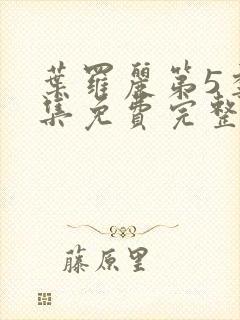 葉羅麗第5
集免費完整
藤原里